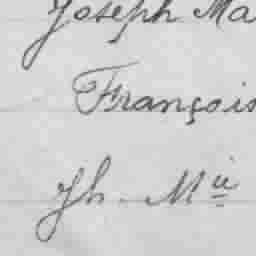 Joseph Ma
François
Jh. Mie